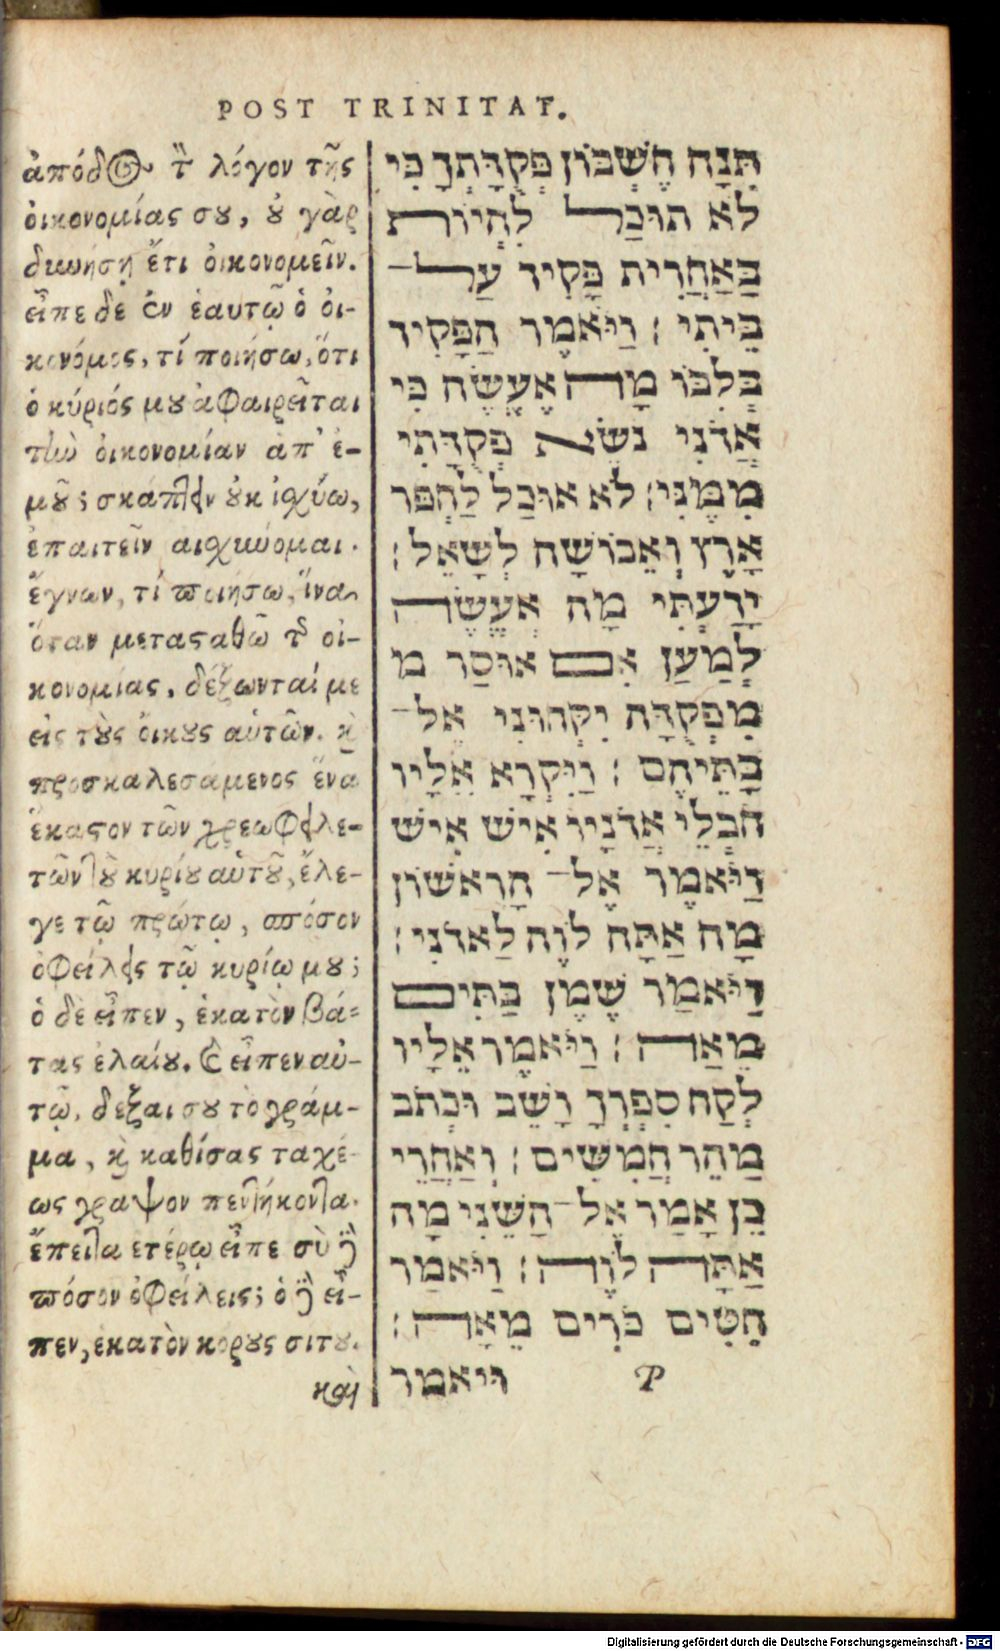 POST TRINITAT.
ἀπόδος τὸν λόγον τῆς
οἰκονομίας σου, οὐ γὰρ
δυνήσῃ ἔτι οἰκονομεῖν.
εἶπε δὲ ἐν ἑαυτῷ ὁ οἰ-
κονόμος, τί ποιήσω, ὅτι
ὁ κύριός μου ἀφαιρεῖται
τὴν οἰκονομίαν ἀπ' ἐ-
μοῦ; σκάπτειν οὐκ ἰσχύω,
ἐπαιτεῖν αἰσχύνομαι.
ἔγνων, τί ποιήσω, ἵνα
ὅταν μετασταθῶ τῆς οἰ-
κονομίας, δέξωνταί με
εἰς τοὺς οἴκους αὑτῶν. καὶ
προσκαλεσάμενος ἕνα
ἕκαστον τῶν χρεωφειλε-
τῶν τοῦ κυρίου αὑτοῦ, ἔλε-
γε τῷ πρώτῳ, πόσον
ὀφείλεις τῷ κυρίῳ μου;
ὁ δὲ εἶπεν, ἑκατὸν βά-
τας ἐλαίου. καὶ εἶπεν αὐ-
τῷ, δέξαι σου τὸ γράμ-
μα, καὶ καθίσας ταχέ-
ως γραψον πεντήκοντα.
ἔπειτα ετέρῳ εἶπε σὺ δὲ
πόσον ὀφείλεις; ὁ δὲ εἶ-
πεν, ἑκατὸν κόρους σίτου.
καὶ
תְּנָה חֶשְׁבּוֹן פְּקֻדָּתְךָ כִּי
לֹא תוּכַל לִחְיוֹת
בְּאַחֲרִית פָּקִיד עַל־
בֵּיתִי : וַיֹּאמֶר הַפָּקִיד
בְּלִבּוֹ מָה אֶעֱשֶׂה כִּי
אֲדֹנִי נֹשֵׂא פְּקֻדָּתִי
מִמֶּנִּי : לֹא אוּכַל לַחְפֹּר
אָרֶץ וְאֵבוֹשָׁה לְשָׁאֵל :
יָדַעְתִּי מָה אֶעֱשֶׂה
לְמַעַן אִם אוּסַר מ
מִפְּקֻדָּה יִקְחוּנִי אֶל־
בָּתֵּיהֶם : וַיִּקְרָא אֵלָיו
חֹבְלֵי אֲדֹנָיו אִישׁ אִישׁ
וַיֹּאמֶר אֶל־ הָרִאשׁוֹן
מָה אַתָּה לוֶֹה לַאדֹנִי :
וַיֹּאמַר שֶׁמֶן בַּתִּים
מֵאָה : וַיֹּאמֶר אֵלָיו
לְקַח סִפְרְךָ וָשֵׁב וּכְתֹב
מַהֵר חֲמִשִּׁים : וְאַחֲרֵי
כֵן אָמַר אֶל־ הַשֵּׁנִי מָה
אַתָּה לוֶֹה : וַיֹּאמַר
חִטִּים כֹּרִים מֵאָה :
P ויאמר
Digitalisierung gefördert durch die Deutsche Forschungsgemeinschaft - DFG